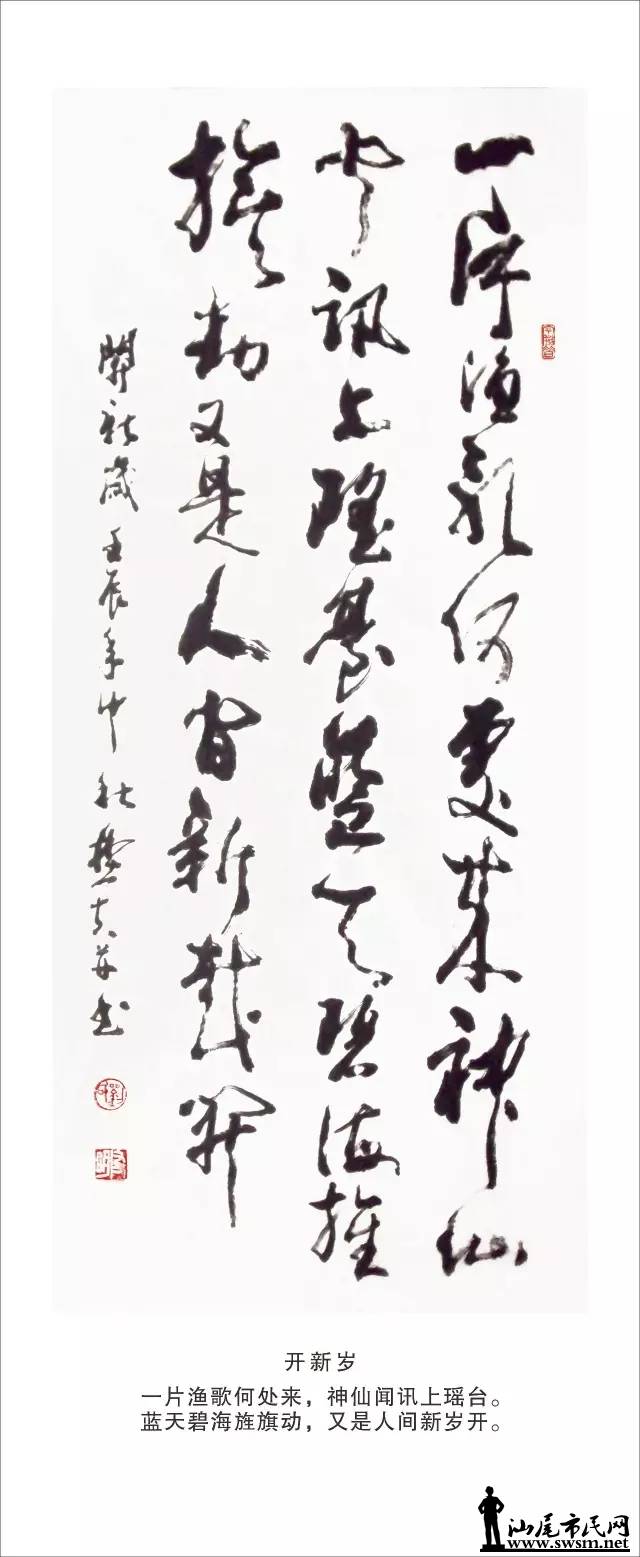 一片渔歌何处来神仙
闻讯上瑶台蓝天碧海旌
旗动又是人间新岁开
開新歲 壬辰年中秋
开新岁
一片渔歌何处来，神仙闻讯上瑶台。
蓝天碧海旌旗动，又是人间新岁开。
汕尾市民网
www.swsm.net